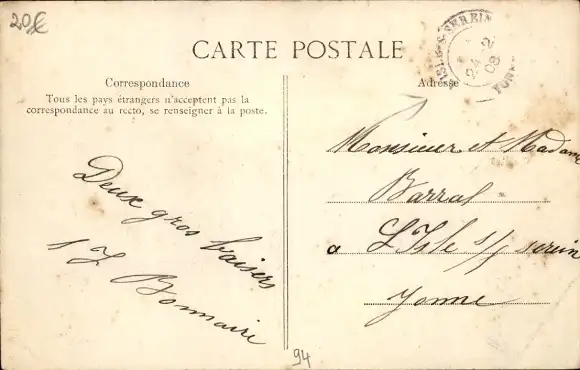 20€
CARTE POSTALE
ISLE-S-SEREIN
24 -2
08
YONNE
Correspondance
Tous les pays étrangers n'acceptent pas la
correspondance au recto, se renseigner à la poste.
Adresse
Deux gros baisers
Bonnaire
Monsieur et Madame
Barral
a L'Isle s/ serein
Yonne
94